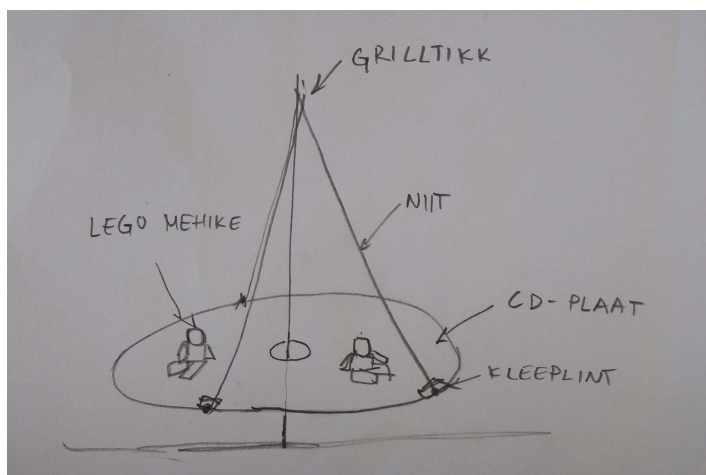 GRILLTIKK
NIIT
LEGO MEHIKE
CD-PLAAT
KLEEPLINT